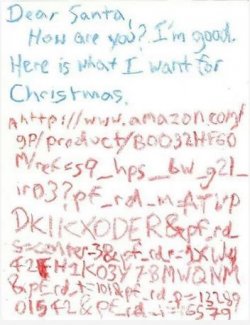 Dear Santa,
How are you? I'm good.
Here is what I want for
Christmas.
http://www.amazon.com/
gp/product/B0032HF60
M/ref=s9_hps_bw_g21_
ir03?pf_rd_m=ATVP
DKIKX0DER&pf_rd_
s=center-3&pf_rd_r=1XWY
42FH1K03Y78MWQNM
&pf_rd_t=101&pf_rd_p=13289
01542&pf_rd_i=16579